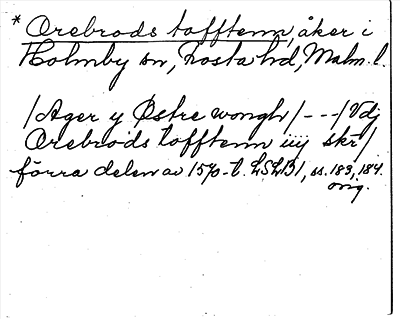 * Orebrods tofftenn, åker i
Holmby sn, Frosta hd, Malm. l.
/Ager y Østre wongh/ - - - /Vdj
Orebrods tofftenn iiij skr/
förra delen av 1570-t. LSLB1, ss. 183, 184.
orig.